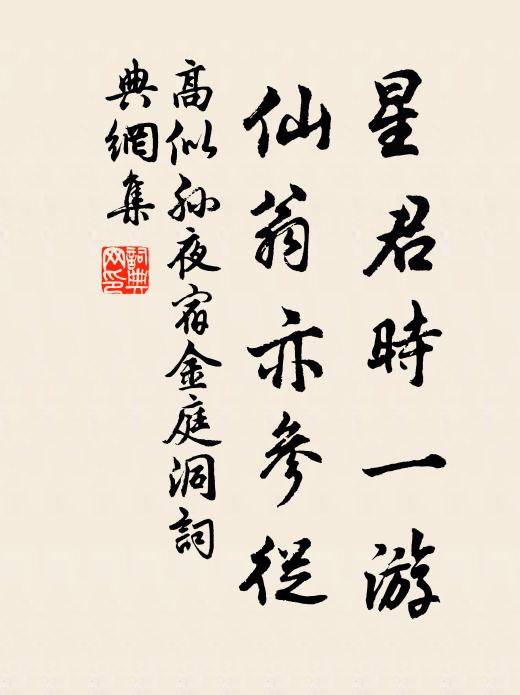 星君時一游
仙翁亦參從
高似孫夜宿金庭洞詞
典網集
詞典
网印